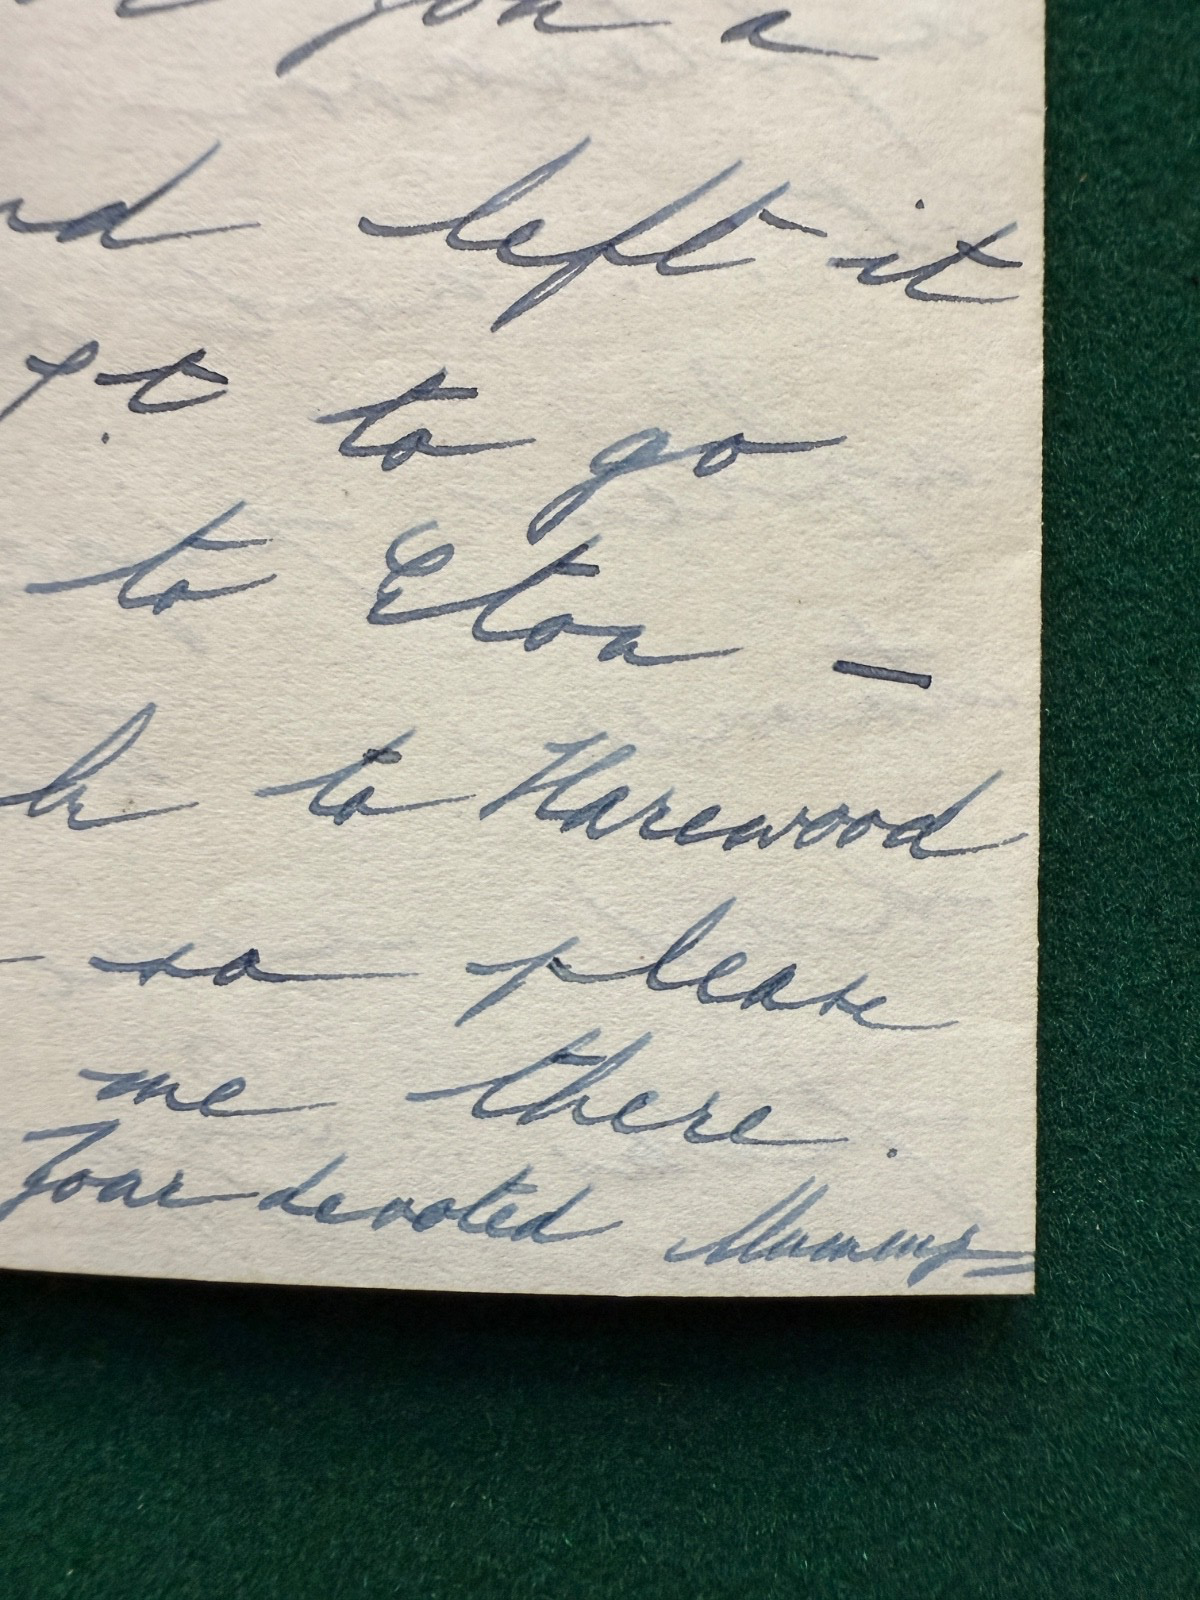 you a
left it
to go
to Eton —
to Harewood
— so please
me there.
Your devoted Mummy